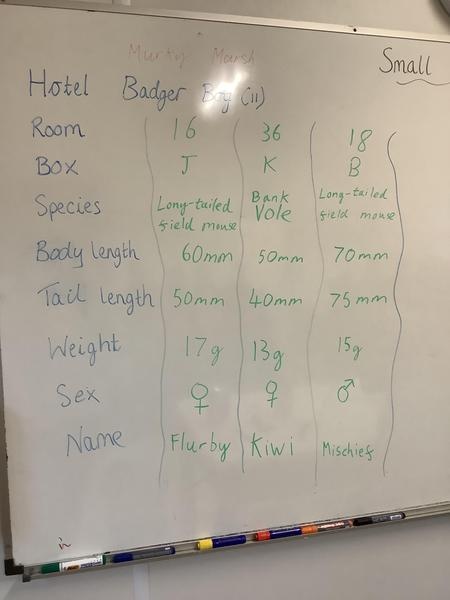 Murky Marsh
Small
Hotel Badger Bog (11)
Room 16 36 18
Box J K B
Species Long-tailed field mouse Bank Vole Long-tailed field mouse
Body length 60mm 50mm 70mm
Tail length 50mm 40mm 75mm
Weight 17g 13g 15g
Sex ♀ ♀ ♂
Name Flurby Kiwi Mischief